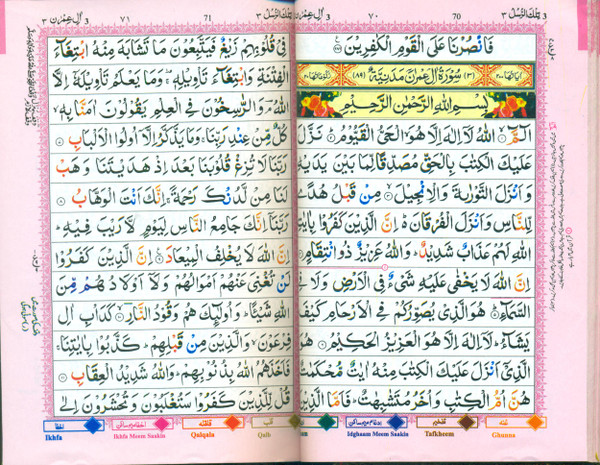 3 تِلْكَ الرُّسُلُ ٣ 70 ٧٠ اٰلِ عِمْرٰن ٣
فَانْصُرْنَا عَلَى الْقَوْمِ الْكٰفِرِيْنَ
اٰيَاتُهَا ٢٠٠ (٣) سُوْرَةُ اٰلِ عِمْرٰنَ مَدَنِيَّةٌ (٨٩) رُكُوْعَاتُهَا ٢٠
بِسْمِ اللّٰهِ الرَّحْمٰنِ الرَّحِيْمِ
الٓمّٓ اللّٰهُ لَاۤ اِلٰهَ اِلَّا هُوَ الْحَىُّ الْقَيُّوْمُ نَزَّلَ
عَلَيْكَ الْكِتٰبَ بِالْحَقِّ مُصَدِّقًا لِّمَا بَيْنَ يَدَيْهِ
وَاَنْزَلَ التَّوْرٰىةَ وَالْاِنْجِيْلَ مِنْ قَبْلُ هُدًى
لِّلنَّاسِ وَاَنْزَلَ الْفُرْقَانَ اِنَّ الَّذِيْنَ كَفَرُوْا بِاٰيٰتِ
اللّٰهِ لَهُمْ عَذَابٌ شَدِيْدٌ وَاللّٰهُ عَزِيْزٌ ذُو انْتِقَامٍ
اِنَّ اللّٰهَ لَا يَخْفٰى عَلَيْهِ شَىْءٌ فِى الْاَرْضِ وَلَا فِى
السَّمَآءِ هُوَ الَّذِىْ يُصَوِّرُكُمْ فِى الْاَرْحَامِ كَيْفَ
يَشَآءُ لَاۤ اِلٰهَ اِلَّا هُوَ الْعَزِيْزُ الْحَكِيْمُ هُوَ
الَّذِىْۤ اَنْزَلَ عَلَيْكَ الْكِتٰبَ مِنْهُ اٰيٰتٌ مُّحْكَمٰتٌ
هُنَّ اُمُّ الْكِتٰبِ وَاُخَرُ مُتَشٰبِهٰتٌ فَاَمَّا الَّذِيْنَ
3 تِلْكَ الرُّسُلُ ٣ 71 ٧١ 3 اٰلِ عِمْرٰن ٣
فِىْ قُلُوْبِهِمْ زَيْغٌ فَيَتَّبِعُوْنَ مَا تَشَابَهَ مِنْهُ ابْتِغَآءَ
الْفِتْنَةِ وَابْتِغَآءَ تَاْوِيْلِهٖ وَمَا يَعْلَمُ تَاْوِيْلَهٗۤ اِلَّا
اللّٰهُ وَالرّٰسِخُوْنَ فِى الْعِلْمِ يَقُوْلُوْنَ اٰمَنَّا بِهٖ
كُلٌّ مِّنْ عِنْدِ رَبِّنَا وَمَا يَذَّكَّرُ اِلَّاۤ اُولُوا الْاَلْبَابِ
رَبَّنَا لَا تُزِغْ قُلُوْبَنَا بَعْدَ اِذْ هَدَيْتَنَا وَهَبْ
لَنَا مِنْ لَّدُنْكَ رَحْمَةً اِنَّكَ اَنْتَ الْوَهَّابُ
رَبَّنَاۤ اِنَّكَ جَامِعُ النَّاسِ لِيَوْمٍ لَّا رَيْبَ فِيْهِ
اِنَّ اللّٰهَ لَا يُخْلِفُ الْمِيْعَادَ اِنَّ الَّذِيْنَ كَفَرُوْا
لَنْ تُغْنِىَ عَنْهُمْ اَمْوَالُهُمْ وَلَاۤ اَوْلَادُهُمْ مِّنَ
اللّٰهِ شَيْئًا وَاُولٰٓئِكَ هُمْ وَقُوْدُ النَّارِ كَدَاْبِ اٰلِ
فِرْعَوْنَ وَالَّذِيْنَ مِنْ قَبْلِهِمْ كَذَّبُوْا بِاٰيٰتِنَا
فَاَخَذَهُمُ اللّٰهُ بِذُنُوْبِهِمْ وَاللّٰهُ شَدِيْدُ الْعِقَابِ
قُلْ لِّلَّذِيْنَ كَفَرُوْا سَتُغْلَبُوْنَ وَتُحْشَرُوْنَ اِلٰى
Ikhfa Ikhfa Meem Saakin Qalqala Qalb Idghaam Meem Saakin Tafkheem Ghunna